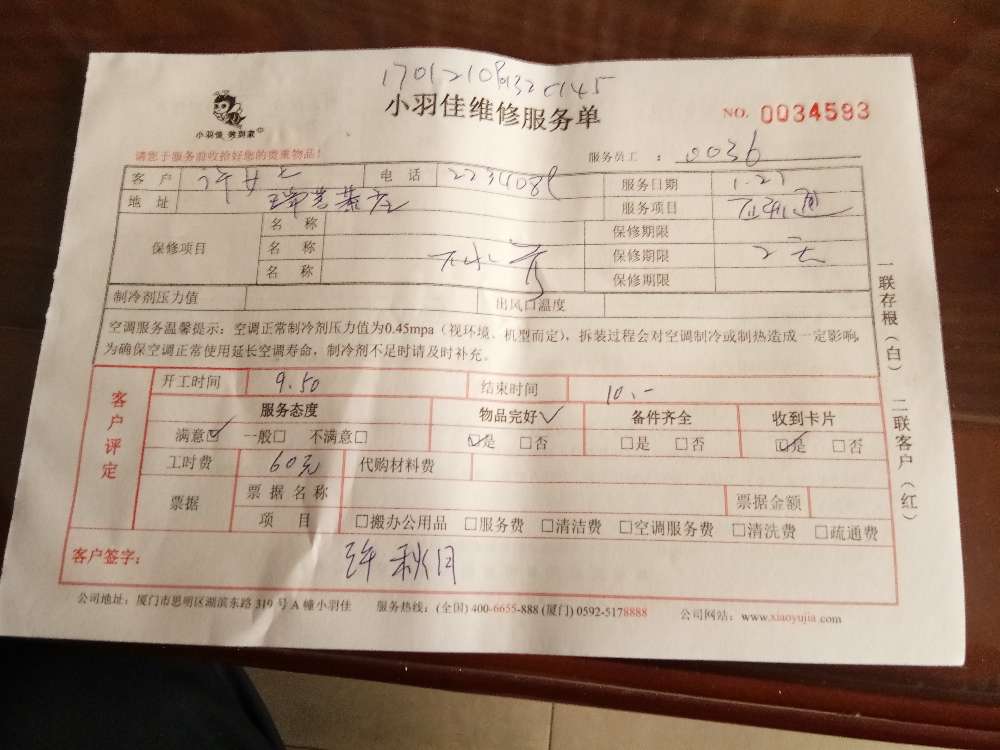 小羽佳维修服务单
NO. 0034593
小羽佳 美到家
请您于服务前收拾好您的贵重物品!
服务员工 : 0036
客户 电话 2234089 服务日期 1.27
地址 服务项目
保修项目 名称 保修期限
名称 下水 保修期限 2天
名称 保修期限
制冷剂压力值 出风口温度
空调服务温馨提示:空调正常制冷剂压力值为0.45mpa(视环境、机型而定),拆装过程会对空调制冷或制热造成一定影响,
为确保空调正常使用延长空调寿命,制冷剂不足时请及时补充。
客户评定
开工时间 9.50 结束时间 10.-
服务态度 物品完好 备件齐全 收到卡片
满意☑ 一般□ 不满意□ ☑是 □否 □是 □否 ☑是 □否
工时费 60元 代购材料费
票据 票据名称 票据金额
项目 □搬办公用品 □服务费 □清洁费 □空调服务费 □清洗费 □疏通费
客户签字: 许秋月
公司地址:厦门市思明区湖滨东路319号A幢小羽佳 服务热线:(全国)400-6655-888 (厦门)0592-5178888 公司网站:www.xiaoyujia.com
一联存根(白) 二联客户(红)